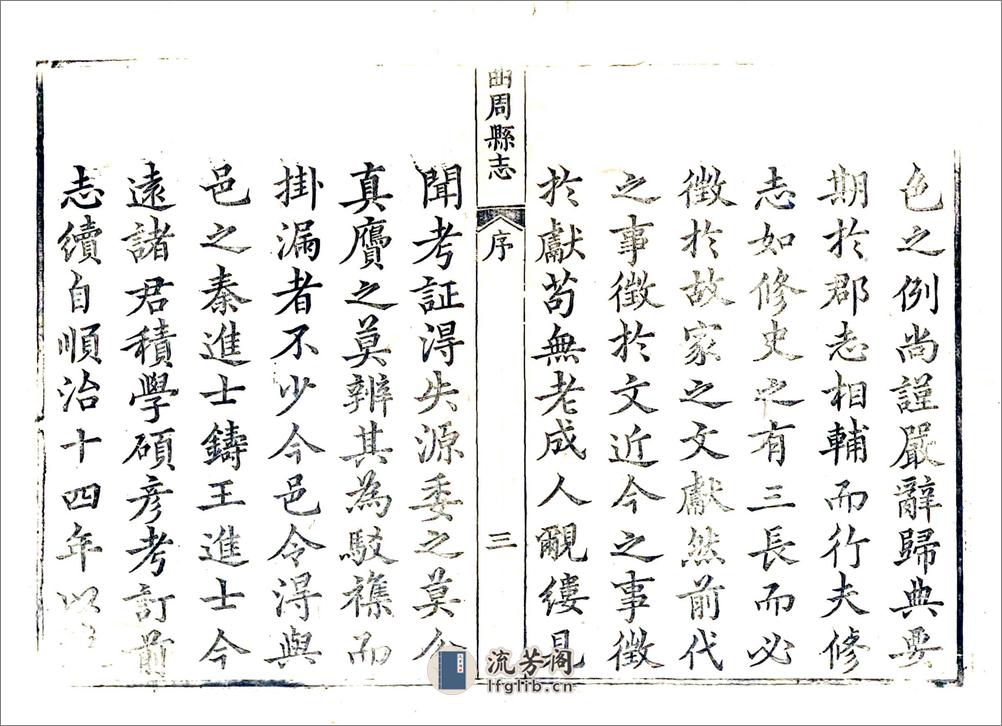 色之例尚謹嚴辭歸典要
期於郡志相輔而行夫修
志如修史之有三長而必
徵於故家之文獻然前代
之事徵於文近今之事徵
於獻苟無老成人覼縷見
曲周縣志
序
三
聞考証得失源委之莫分
真贗之莫辨其為駁襍而
掛漏者不少今邑令淂與
邑之秦進士鑄王進士今
遠諸君積學碩彥考訂前
志續自順治十四年以
流芳阁
lfglib.cn